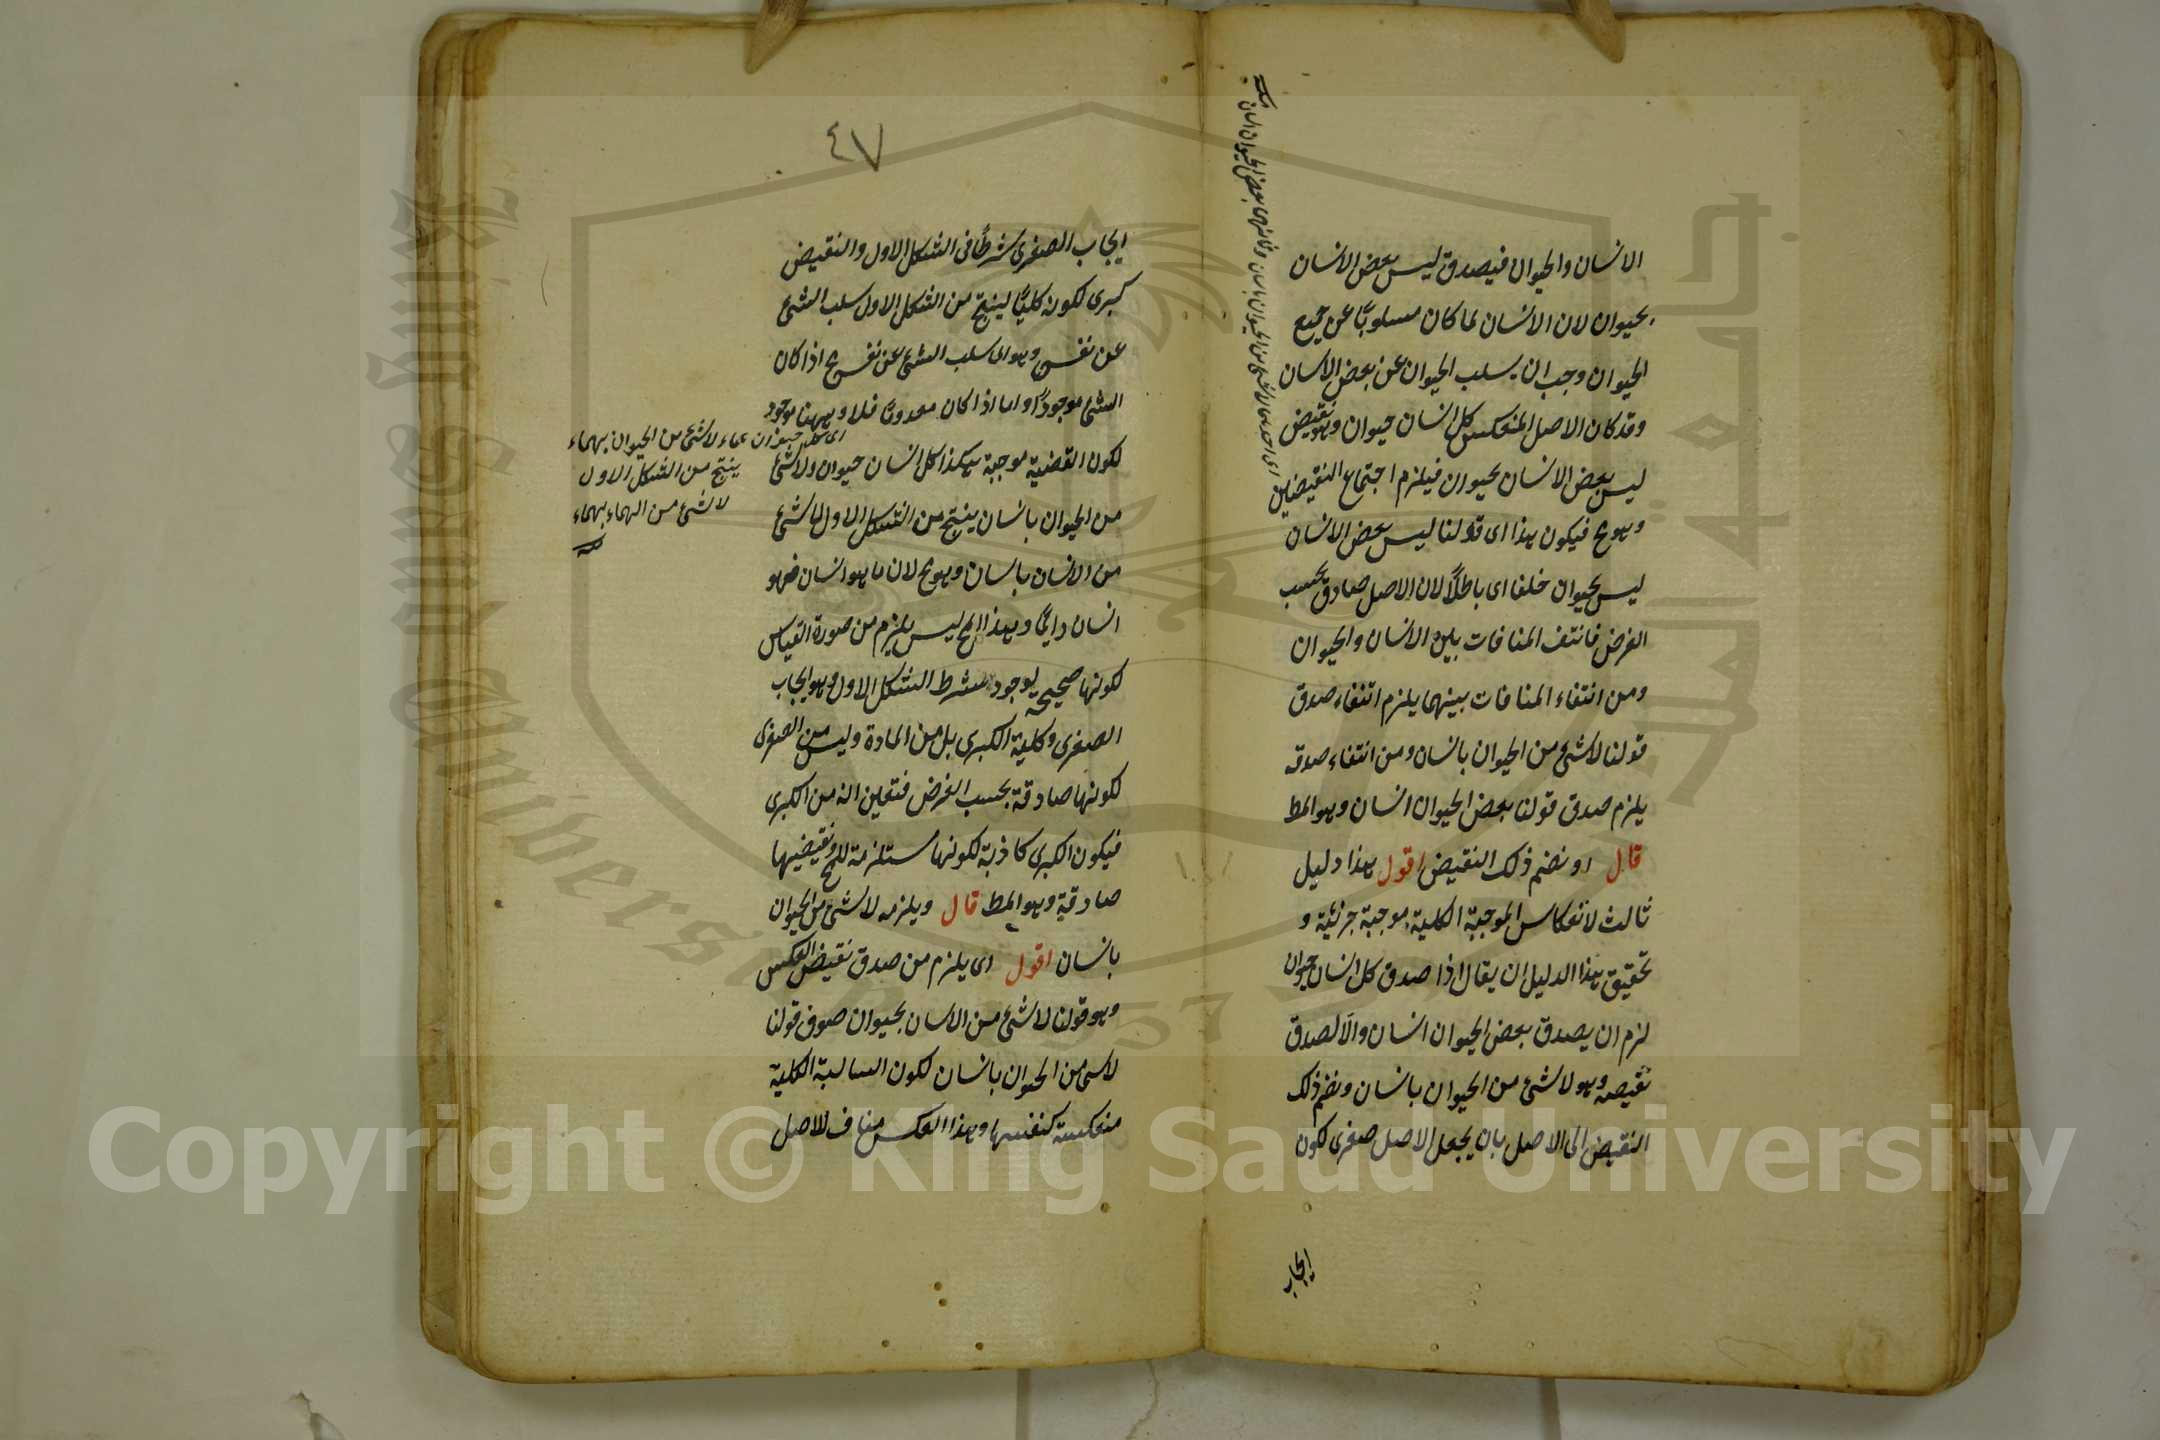 الانسان والحيوان فيصدق ليس بعض الانسان
بحيوان لان الانسان لما كان مسلوبًا عن جميع
الحيوان وجب ان يسلب الحيوان عن بعض الانسان
وقد كان الاصل المنعكس كل انسان حيوان وهو نقيض
ليس بعض الانسان بحيوان فيلزم اجتماع النقيضين
وهو مح فيكون هذا اى قولنا ليس بعض الانسان
ليس بحيوان خلفا اى باطلاً لان الاصل صادق بحسب
الفرض فانتف المنافات بين الانسان والحيوان
ومن انتفاء المنافات بينهما يلزم انتفاء صدق
قولنا لا شئ من الحيوان بانسان ومن انتفاء صدقه
يلزم صدق قولنا بعض الحيوان انسان وهو المط
قال او نضم ذلك النقيض اقول هذا دليل
ثالث لانعكاس الموجبة الكلية موجبة جزئية و
تحقيق هذا الدليل ان يقال اذا صدق كل انسان حيوان
لزم ان يصدق بعض الحيوان انسان والّا لصدق
نقيضه وهو لا شئ من الحيوان بانسان ونضم ذلك
النقيض الى الاصل بان يجعل الاصل صغرى لكون
ايجاب
٤٧
ايجاب الصغرى شرطًا فى الشكل الاول والنقيض
كبرى لكونه كليًّا لينتج من الشكل الاول سلب الشئ
عن نفسه وهو اى سلب الشئ عن نفسه مح اذا كان
الشئ موجودًا واما اذا كان معدومًا فلا وههنا موجود
لكون القضية موجبة هكذا كل انسان حيوان ولا شئ
من الحيوان بانسان ينتج من الشكل الاول لا شئ
من الانسان بانسان وهو مح لان ما هو انسان فهو
انسان دايمًا وهذا المح ليس يلزم من صورة القياس
لكونها صحيحة لوجود شرط الشكل الاول وهو ايجاب
الصغرى وكلية الكبرى بل من المادة وليس من الصغرى
لكونها صادقة بحسب الفرض فتعين انه من الكبرى
فيكون الكبرى كاذبة لكونها مستلزمة للمح ونقيضها
صادقية وهو المط قال ويلزمه لا شئ من الحيوان
بانسان اقول اى يلزم من صدق نقيض العكس
وهو قولنا لا شئ من الانسان بحيوان صدق قولنا
لا شئ من الحيوان بانسان لكون السالبة الكلية
منعكسة كنفسها وهذا العكس مناف للاصل
لا شئ من الحيوان بهماء
ينتج من الشكل الاول
لا شئ من الهماء بهماء
King Saud University
1957
Copyright © King Saud University